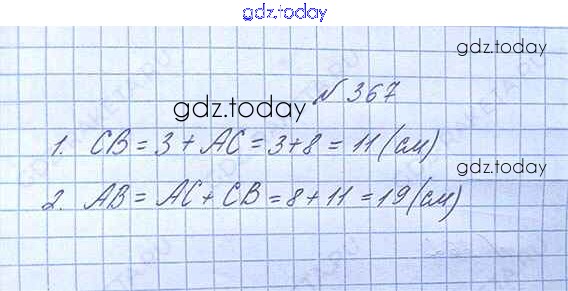 gdz.today
gdz.today
№ 367
gdz.today
1. СВ = 3 + АС = 3+8 = 11 (см)
gdz.today
2. АВ = АС + СВ = 8 + 11 = 19 (см)